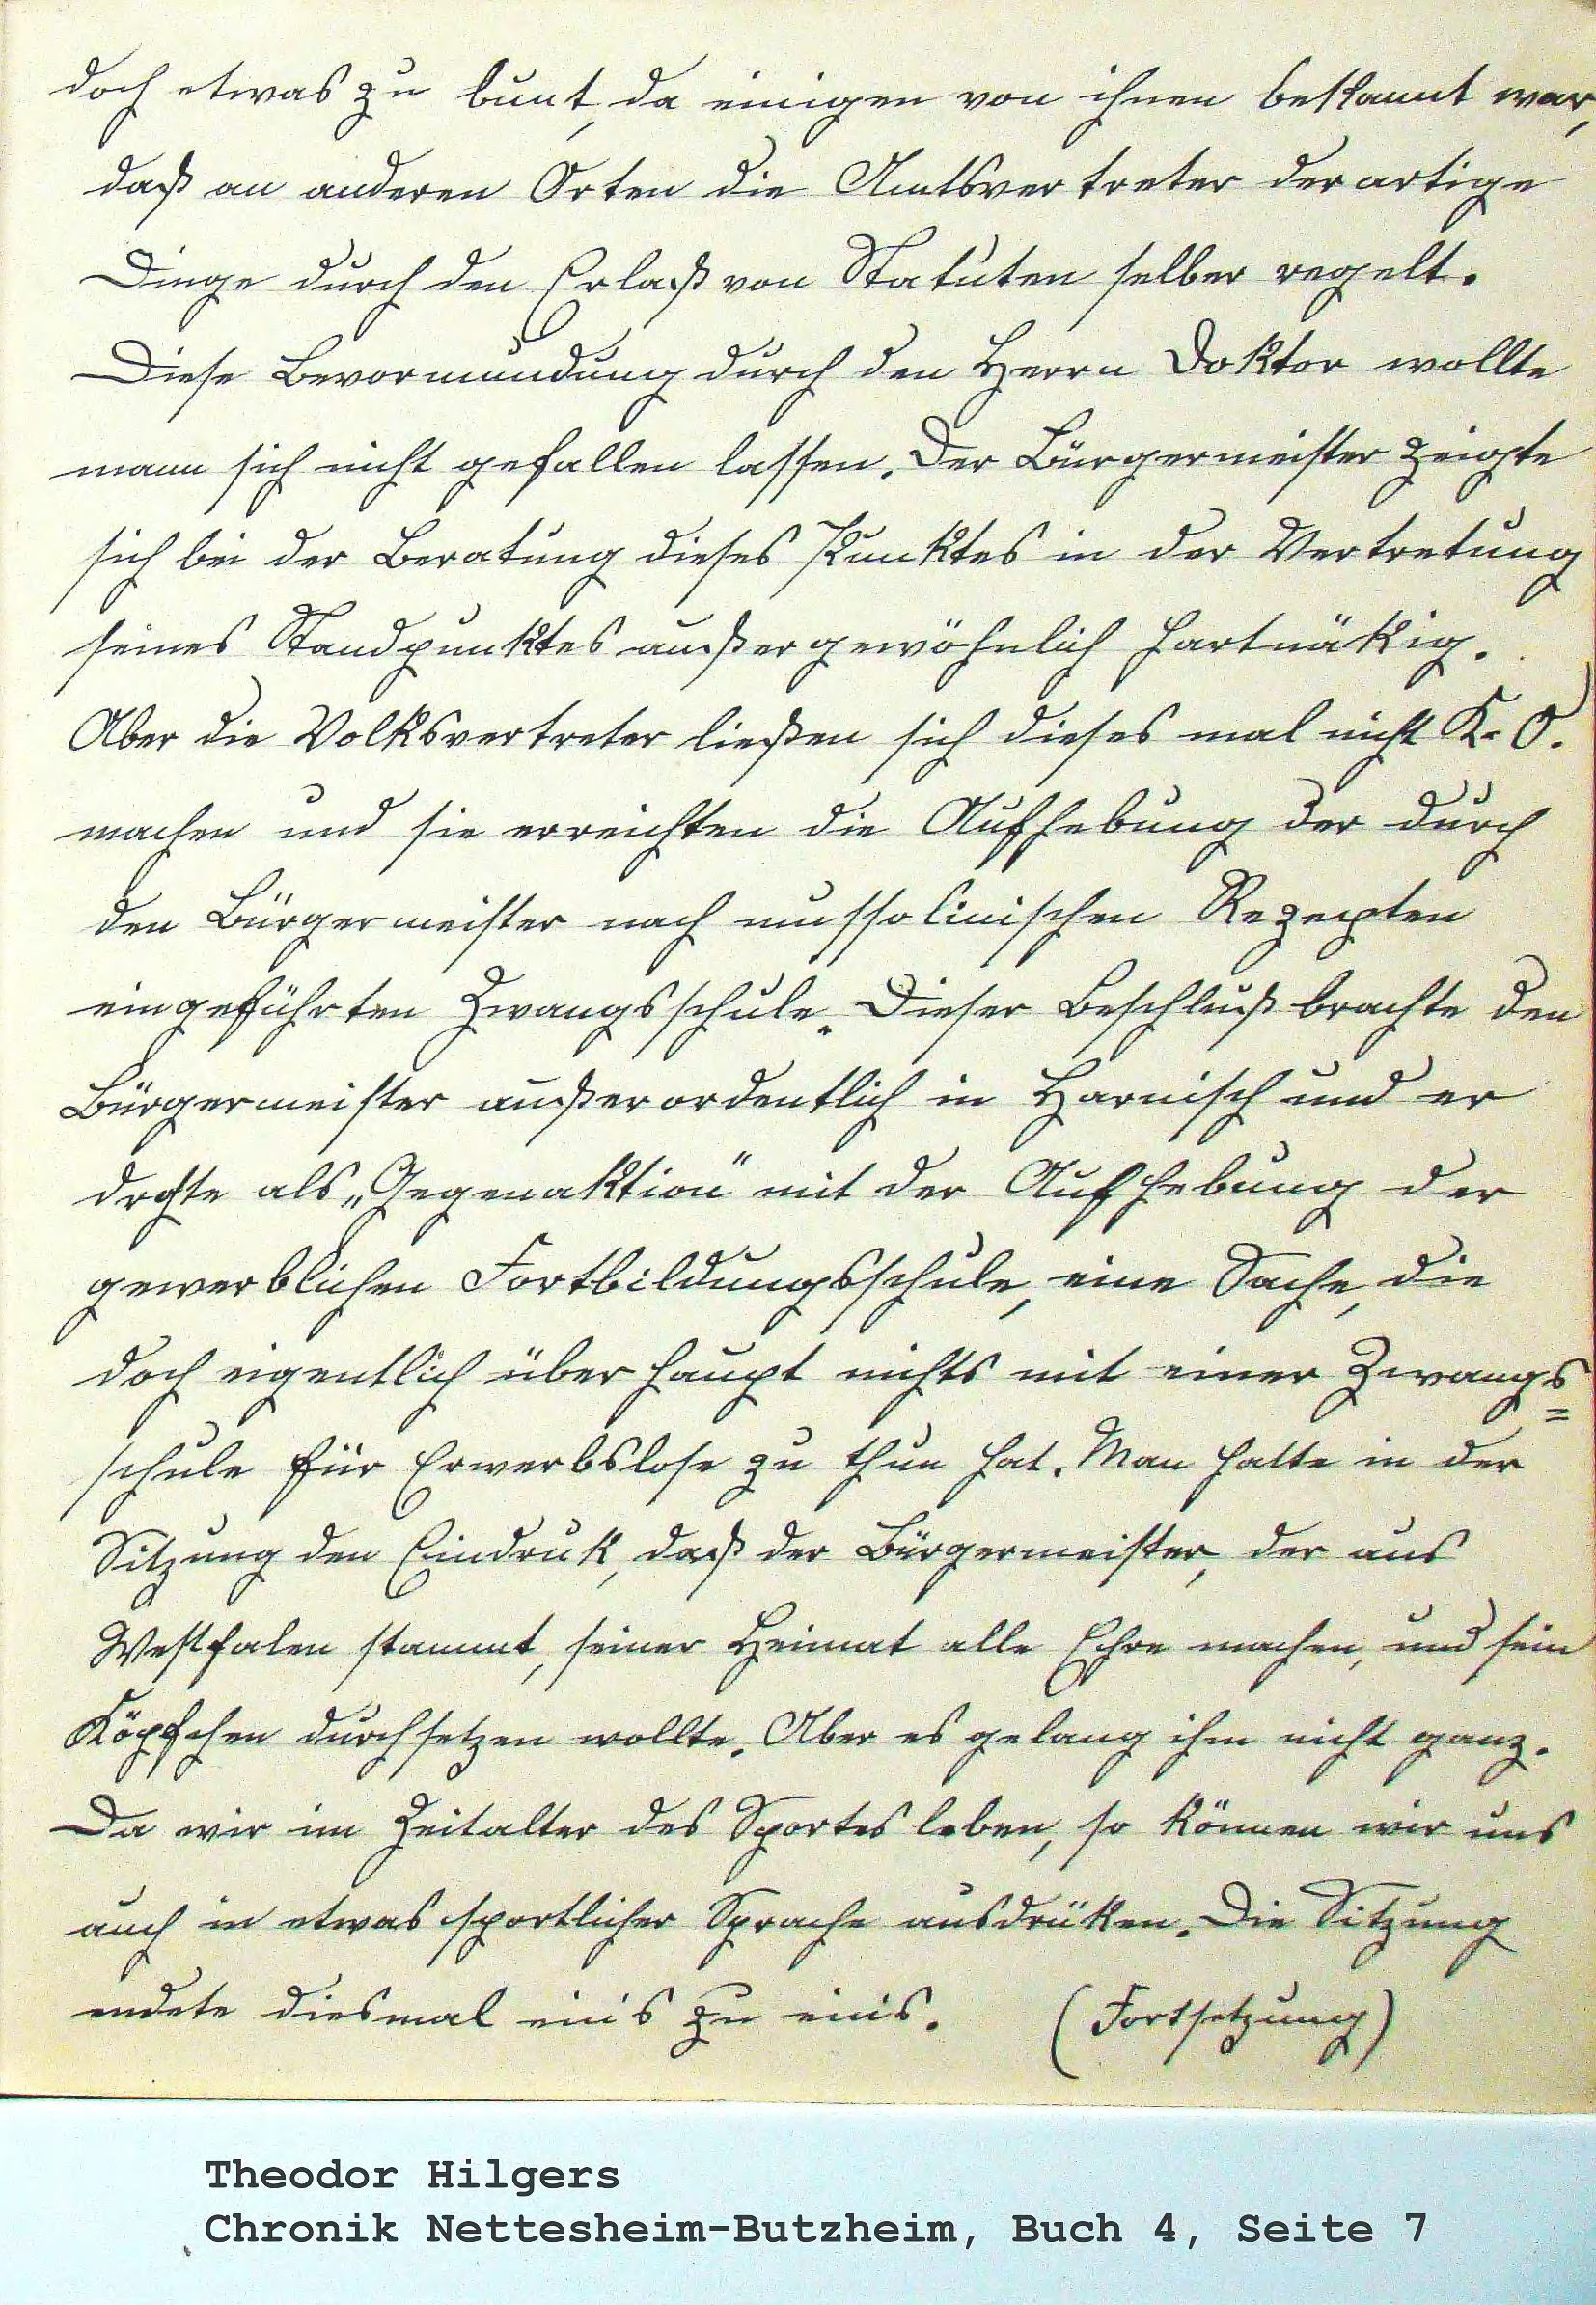 doch etwas zu bunt, da einigen von ihnen bekannt war,
daß an anderen Orten die Amtsvertreter derartige
Dinge durch den Erlaß von Statuten selber regelt.
Diese Bevormundung durch den Herrn Doktor wollte
mann sich nicht gefallen lassen. Der Bürgermeister zeigte
sich bei der Beratung dieses Punktes in der Vertretung
seines Standpunktes außergewöhnlich hartnäkig.
Aber die Volksvertreter ließen sich dieses mal nicht K.O.
machen und sie erreichten die Aufhebung der durch
den Bürgermeister nach mussolinischen Rezepten
eingeführten Zwangsschule. Dieser Beschluß brachte den
Bürgermeister außerordentlich in Harnisch und er
drohte als „Gegenaktion" mit der Aufhebung der
gewerblichen Fortbildungsschule, eine Sache, die
doch eigentlich überhaupt nichts mit einer Zwangs=
schule für Erwerbslose zu thun hat. Man hatte in der
Sitzung den Eindruk, daß der Bürgermeister, der aus
Westfalen stammt, seiner Heimat alle Ehre machen, und sein
Köpfchen durchsetzen wollte. Aber es gelang ihm nicht ganz.
Da wir im Zeitalter des Sportes leben, so können wir uns
auch in etwas sportlicher Sprache ausdrüken. Die Sitzung
endete diesmal eins zu eins. (Fortsetzung)
Theodor Hilgers
Chronik Nettesheim-Butzheim, Buch 4, Seite 7